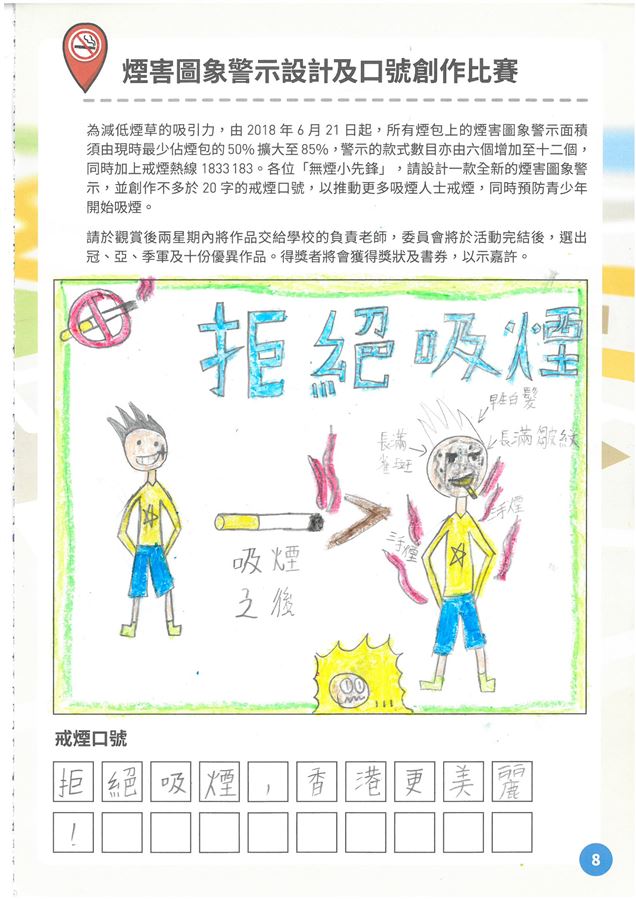 煙害圖象警示設計及口號創作比賽
為減低煙草的吸引力，由 2018 年 6 月 21 日起，所有煙包上的煙害圖象警示面積
須由現時最少佔煙包的 50% 擴大至 85%，警示的款式數目亦由六個增加至十二個，
同時加上戒煙熱線 1833 183。各位「無煙小先鋒」，請設計一款全新的煙害圖象警
示，並創作不多於 20 字的戒煙口號，以推動更多吸煙人士戒煙，同時預防青少年
開始吸煙。
請於觀賞後兩星期內將作品交給學校的負責老師，委員會將於活動完結後，選出
冠、亞、季軍及十份優異作品。得獎者將會獲得獎狀及書券，以示嘉許。
拒絕吸煙
早生白髮
長滿雀斑
長滿皺紋
三手煙
三手煙
吸煙
之後
戒煙口號
拒絕吸煙，香港更美麗
！
8